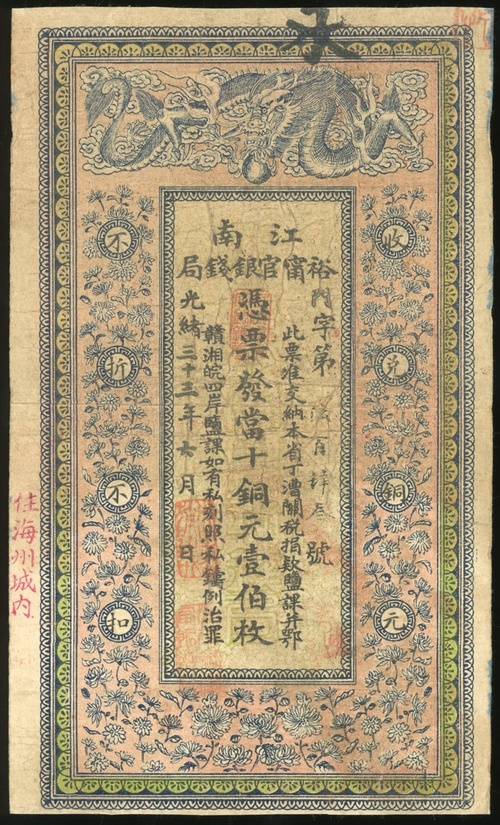 江南
裕甯官銀錢局
收兌銅元
字第
號
此票准交納本省丁漕關稅捐款鹽課并鄂
憑票發當十銅元壹佰枚
贛湘皖四岸鹽課如有私刻即私鑄例治罪
光緒三十三年六月 日
不折不扣
住海州城内